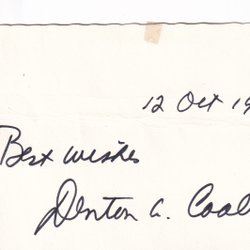 12 Oct 19
Best wishes
Denton A. Cool